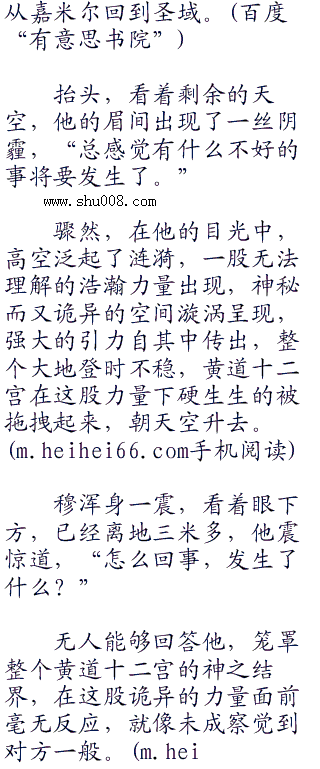 从嘉米尔回到圣域。(百度
“有意思书院”)
抬头，看着剩余的天
空，他的眉间出现了一丝阴
霾，“总感觉有什么不好的
事将要发生了。”
www.shu008.com
骤然，在他的目光中，
高空泛起了涟漪，一股无法
理解的浩瀚力量出现，神秘
而又诡异的空间漩涡呈现，
强大的引力自其中传出，整
个大地登时不稳，黄道十二
宫在这股力量下硬生生的被
拖拽起来，朝天空升去。
(m.heihei66.com手机阅读)
穆浑身一震，看着眼下
方，已经离地三米多，他震
惊道，“怎么回事，发生了
什么？”
无人能够回答他，笼罩
整个黄道十二宫的神之结
界，在这股诡异的力量面前
毫无反应，就像未成察觉到
对方一般。(m.hei